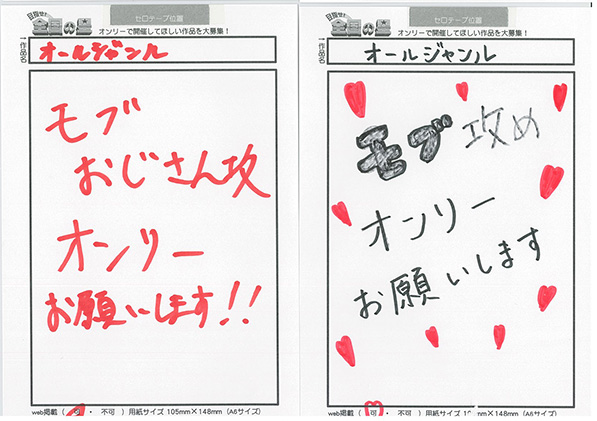 セロテープ位置
目指せ!
全国の星
オンリーで開催してほしい作品を大募集!
↑作品名
オールジャンル
モブ
おじさん攻
オンリー
お願いします!!
web掲載( 可 ・ 不可 ) 用紙サイズ 105mm×148mm(A6サイズ)
セロテープ位置
目指せ!
オンリーで開催してほしい作品を大募集!
↑作品名
オールジャンル
モブ攻め
オンリー
お願いします
web掲載( 可 ・ 不可 ) 用紙サイズ 1 mm×148mm(A6サイズ)